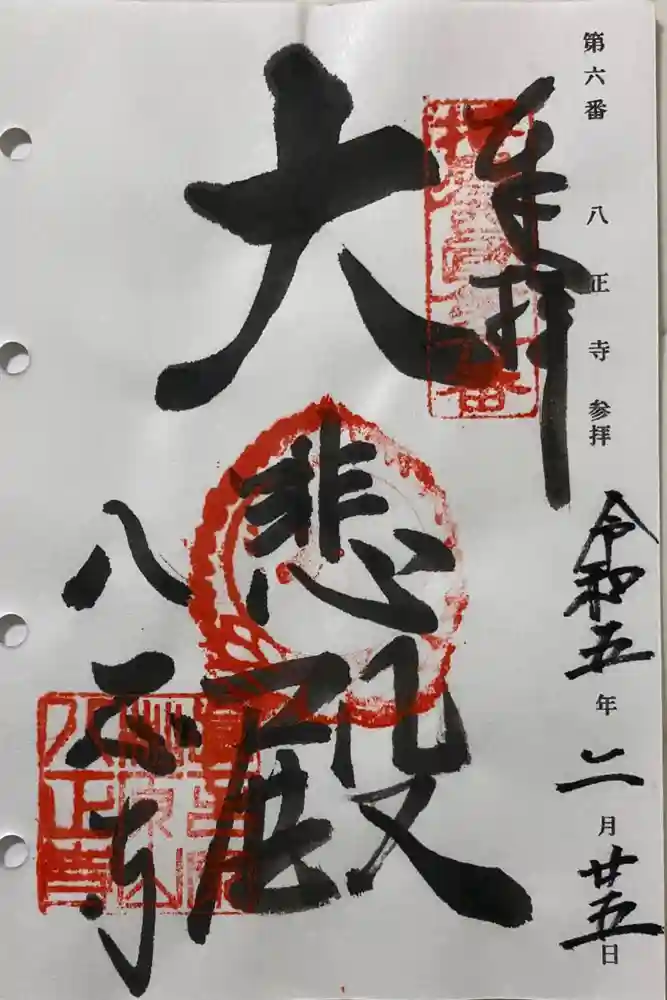 第六番 八正寺 参拝
令和五年二月廿五日
奉拝
大悲殿
八正寺
八正寺